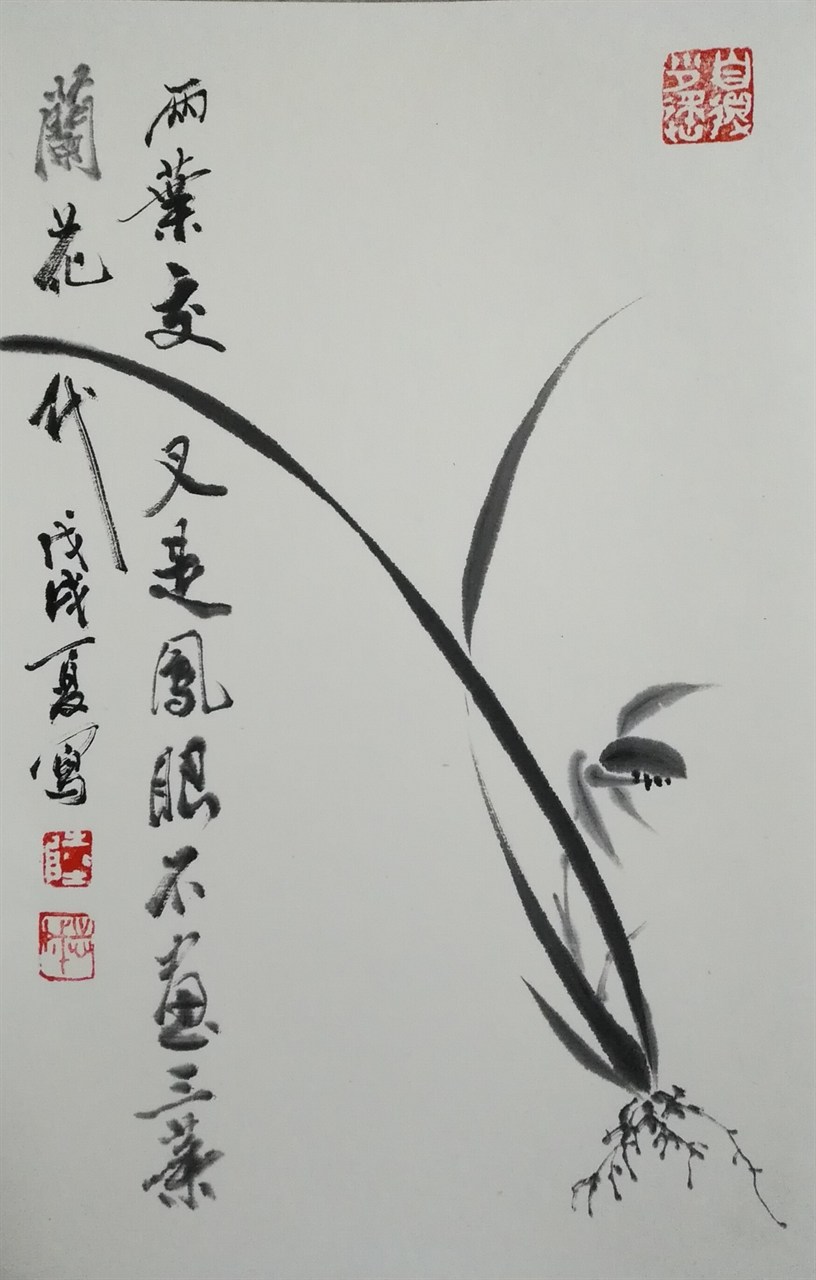 兩葉交叉是鳳眼不畫三葉
蘭花代戊戌夏寫
陸